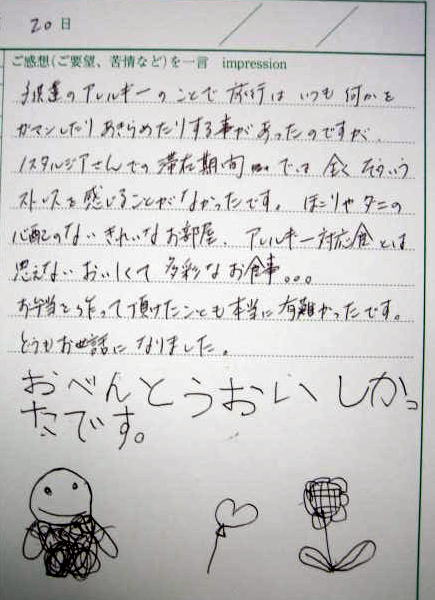 20日
ご感想(ご要望、苦情など)を一言 impression
子供達のアレルギーのことで旅行は いつも 何かを
ガマンしたり あきらめたりする事があったのですが、
ノスタルジアさんでの 滞在期間 では 全く そういう
ストレスを感じることがなかったです。 ほこりやダニの
心配のない きれいなお部屋、アレルギー対応食とは
思えない おいしくて 多彩なお食事。。。
お弁当を作って頂けたことも 本当に 有難かったです。
どうもお世話に なりました。
おべんとうおいしかっ
たです。